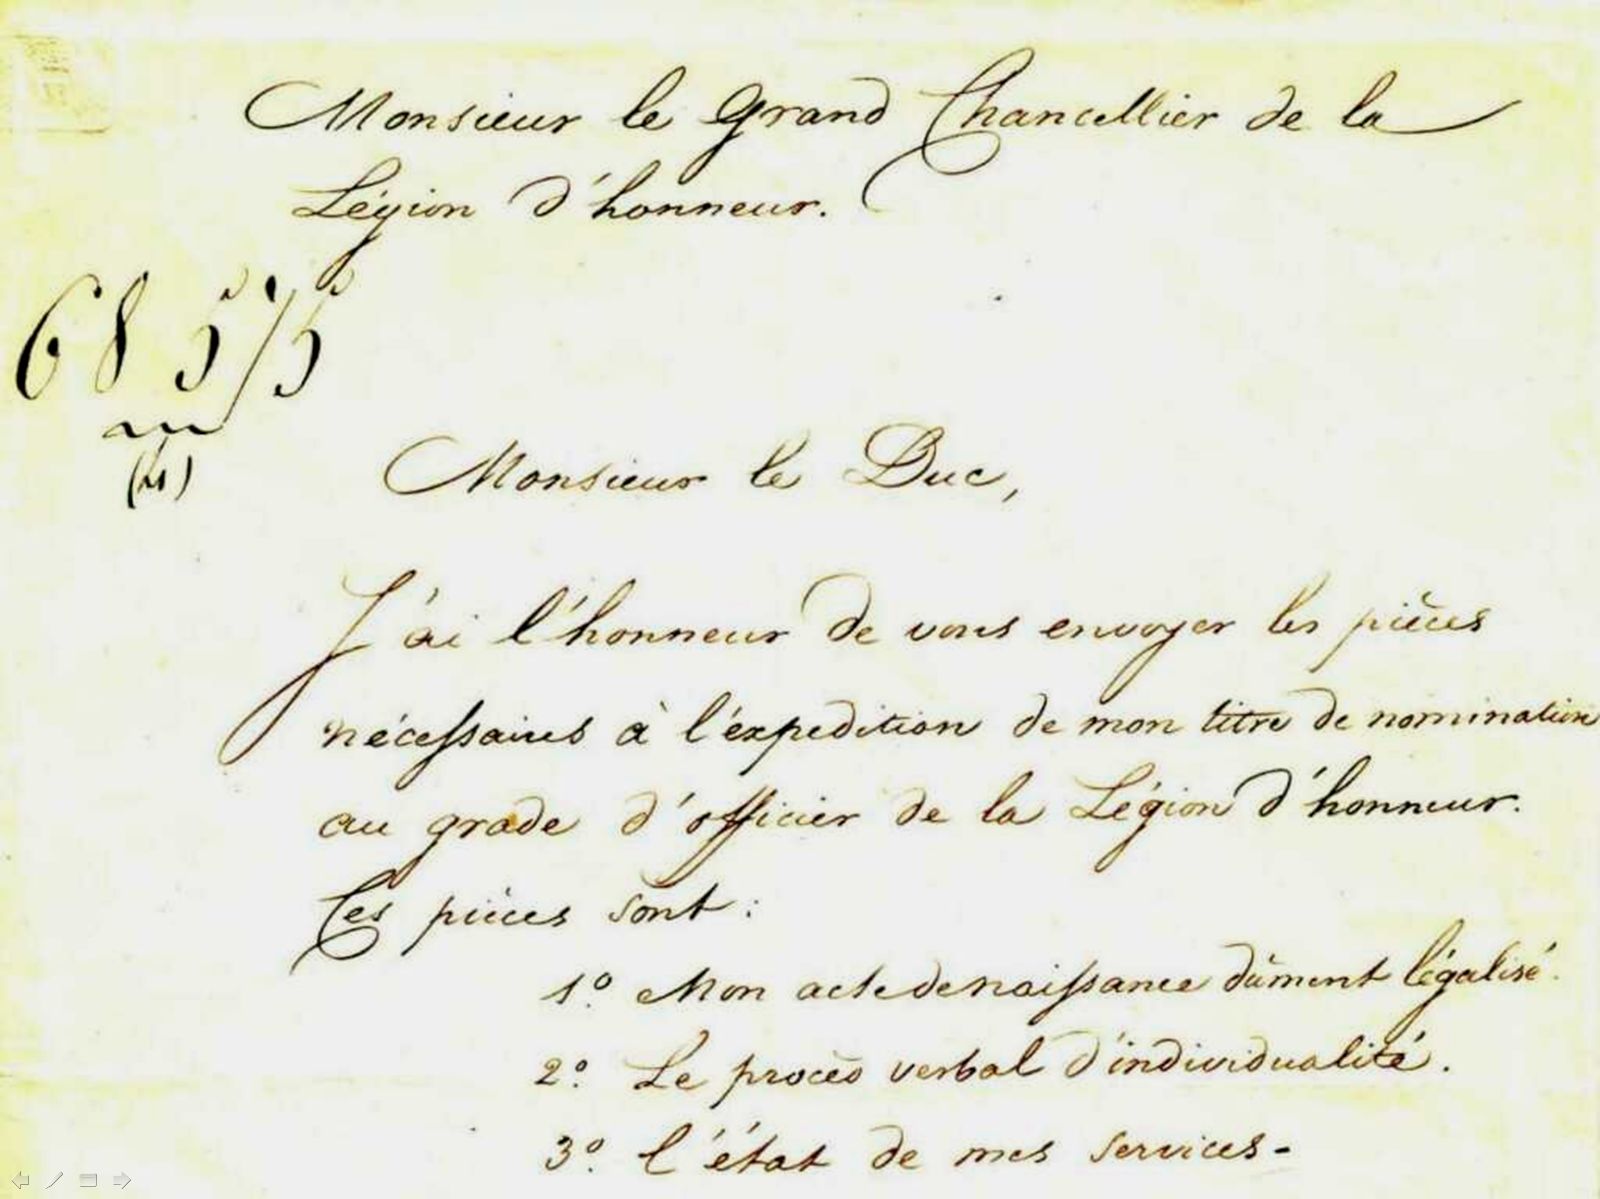 Monsieur le Grand Chancellier de la
Légion d'honneur.
68575
Monsieur le Duc,
J'ai l'honneur de vous envoyer les pièces
nécessaires à l'éxpedition de mon titre de nomination
au grade d'officier de la Légion d'honneur.
Ces pièces sont :
1º. Mon acte de naissance dûment légalisé.
2º. Le procès verbal d'individualité.
3º. l'état de mes services -